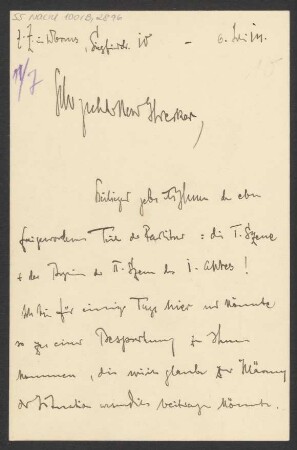 SS Nachl 100/B, 2896
z. Z. in Worms, Siegfriedstr. 10 — 6. Juli 14.
Sehr geehrter Herr Strecker,
Beiliegend gebe ich Ihnen den eben
fertiggewordenen Teil der Partitur: die I. Szene
+ den Beginn der II. Szene des I. Aktes!
Ich bin für einige Tage hier und könnte
so zu einer Besprechung zu Ihnen
kommen, die wie ich glaube zur Klärung
der Situation wesentlich beitragen könnte.